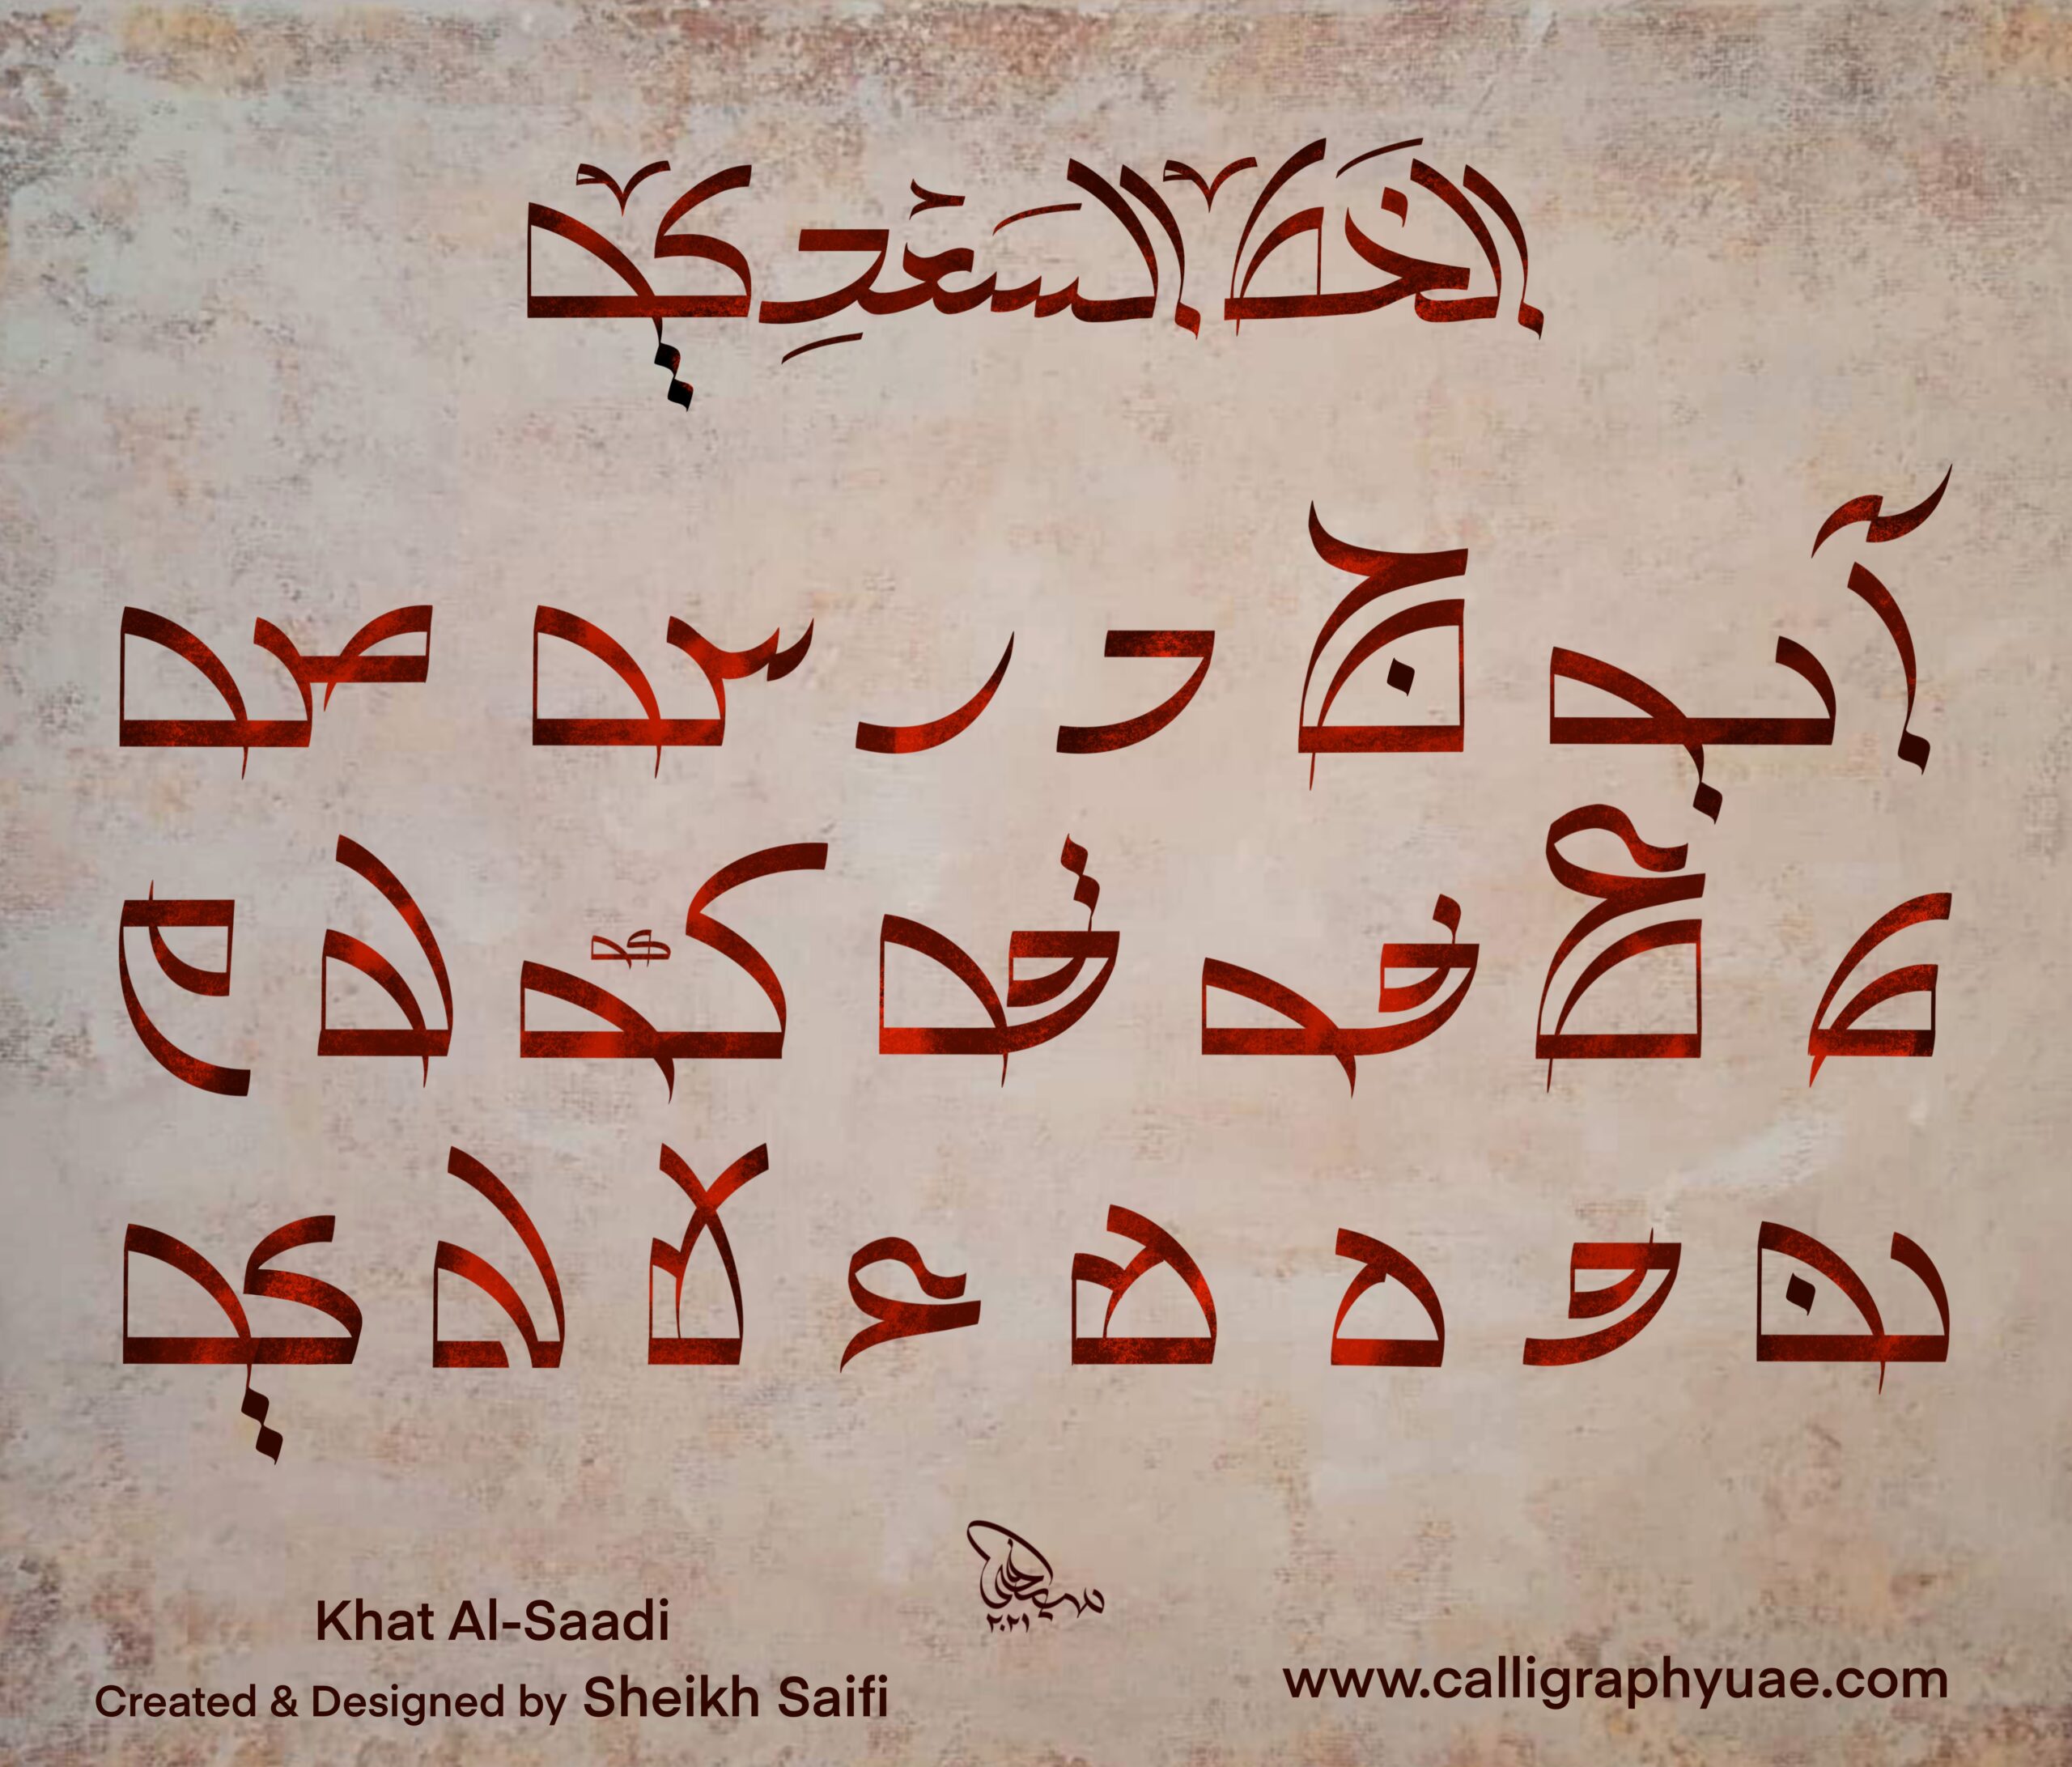 الخَط السَعْدِي
آ ب ج د ر س ص
ط ع ف ق ك ل م
ن و ه ه ء لا لا ي
٢٠٢١
Khat Al-Saadi
Created & Designed by Sheikh Saifi
www.calligraphyuae.com